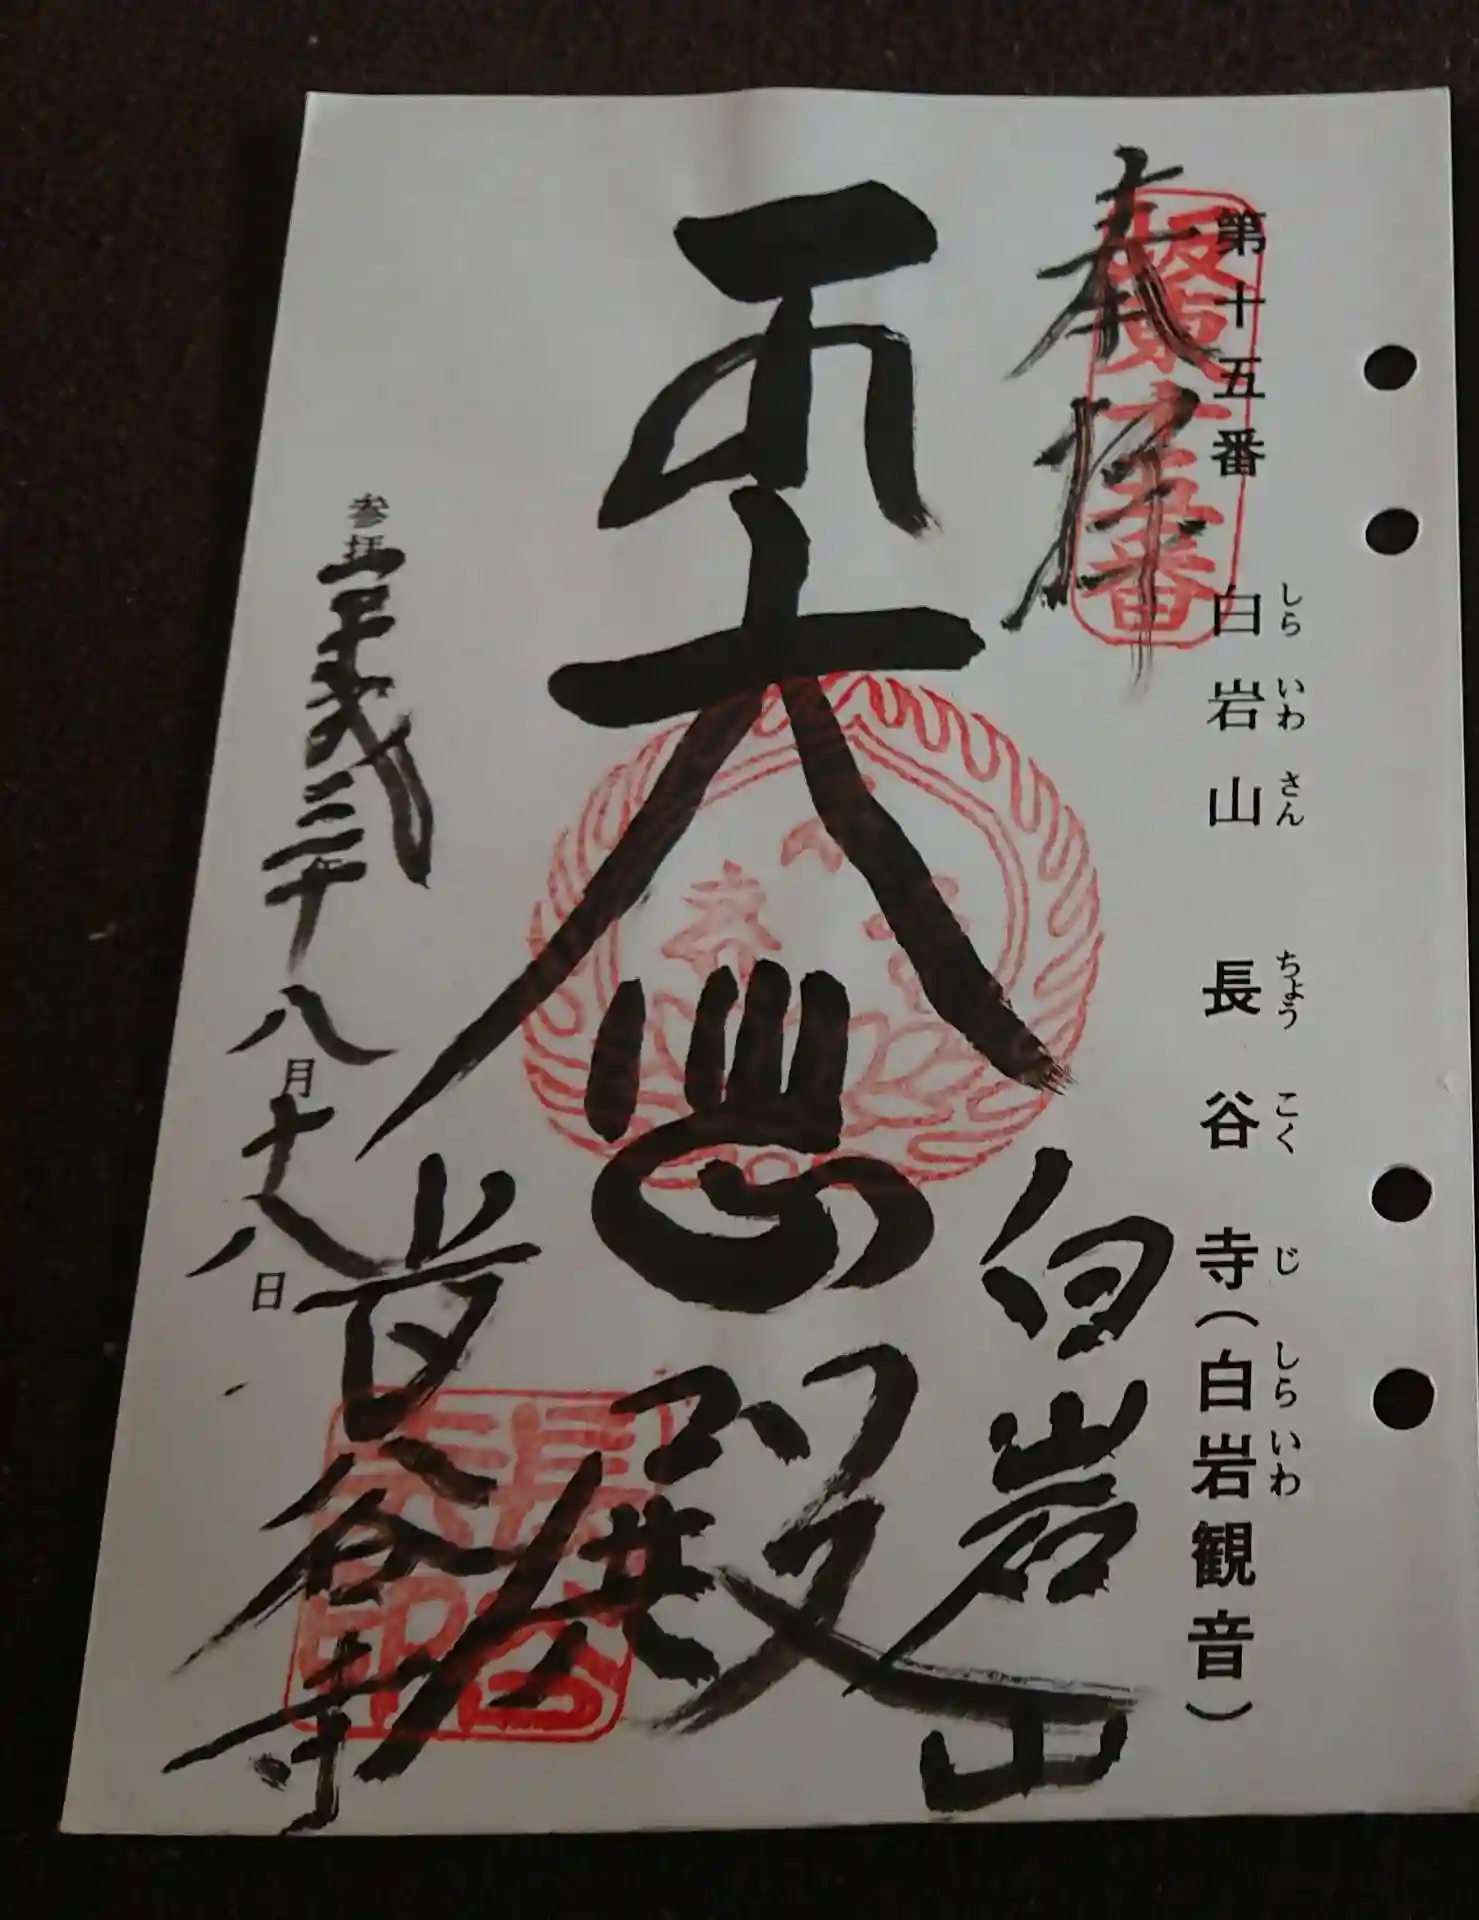 第十五番 白岩山 長谷寺(白岩観音)
しら いわ さん ちょう こく じ しら いわ
奉拝
坂東十五番
大悲殿
白岩山
参拝 平成三十年八月十八日
長谷寺